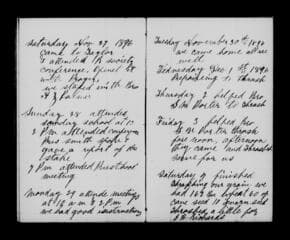 Saturday Nov 27, 1896
came to Taylor
I attended M society
conference, Opened at
with Prayer,
we stayed with Bro
A Z Palmer
Sunday 28 attended
sunday school at 10
2 P.M. attended conference
Pres smith spoke
gave a report of the
stake
7 P.m attended Priesthood
meeting
Monday 29 attende meetings
at 10 a.m & 2 P.m
we had good instructions
Tuesday November 30th 1896
we came home all
well
Wednesday Dec 1st 1896
Repairing Thrash
Thursday 2 helped Bro
D M Porter to thresh
Friday 3 helped Bro
Porter thrash
one noon, afternoon
they came and Thrashed
some for us
Saturday 4 finished
thrashing our grain we
had 102 & of
cane seed 10
Thrashed a little for
J. E. Richards